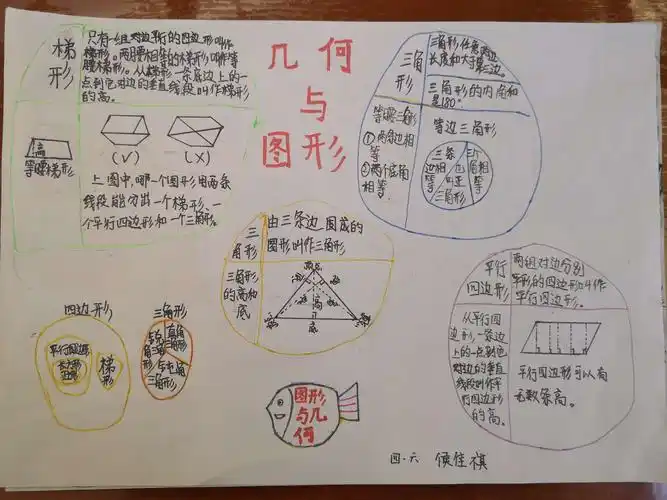 梯形
只有一组对边平行的四边形叫作
梯形。两腰相等的梯形叫作等
腰梯形。从梯形一条底边上的一
点到它对边的垂直线段叫作梯形
的高。
高
等腰梯形
(√)
(×)
上图中,哪一个图形用两条
线段能分出一个梯形、一
个平行四边形和一个三角形。
几何
与
图形
三角形
三角形任意两边
长度和大于第三边。
三角形的内角和
是180°
等腰三角形
①两条边相
等
②两个底角
相等
等边三角形
三条边相等
三个角相等
也叫正
三角形
三角形
由三条边围成的
图形叫作三角形
三角形
的高和
底
顶点
高
底
平行
四边形
两组对边分别
平形的四边形叫作
平行四边形。
从平行四
边形,一条边
上的一点到它
对边的垂直
线段叫作平
行四边形
的高。
平行四边形可以有
无数条高。
四边形
平行四边形
长方形
正方形
梯形
三角形
锐角三角形
直角三角形
钝角三角形
图形
与几何
四·六 侯佳祺